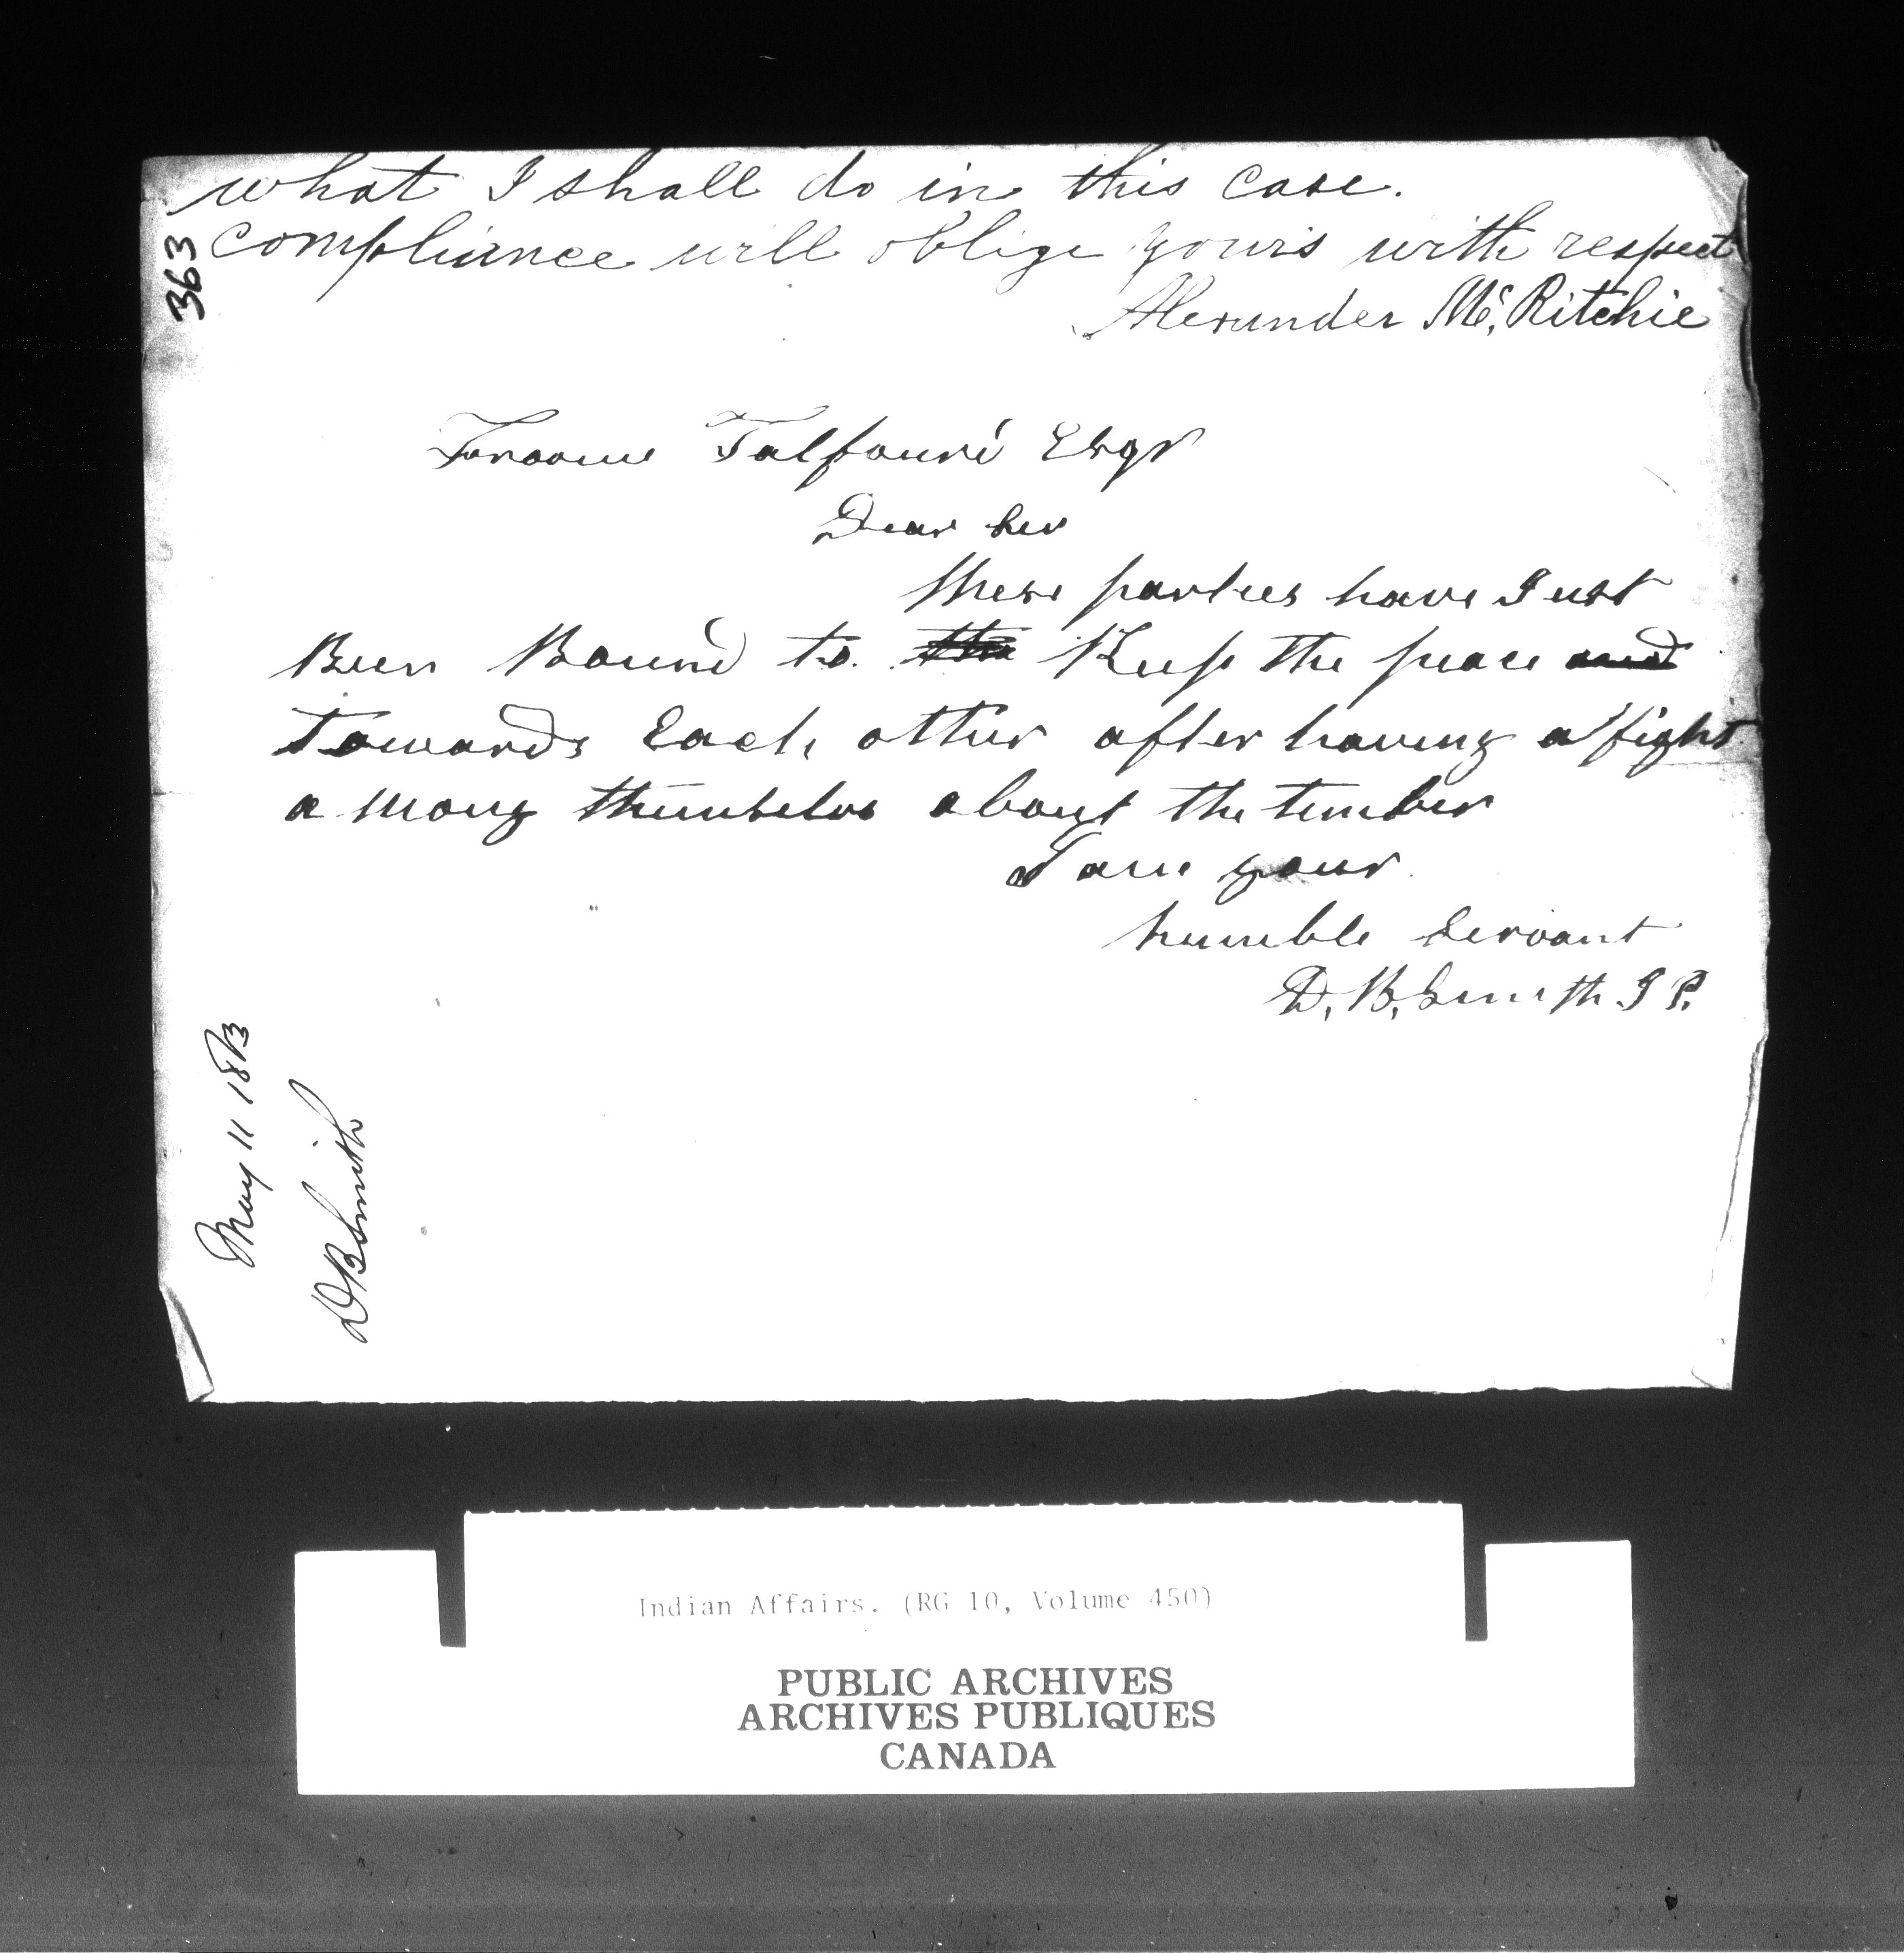 what I shall do in this case.
compliance will oblige yours with respect
Alexander Mc. Ritchie
363
Talfourd Esqr
Dear Sir
these parties have Just
Been Bound to the Keep the peace and
Towards Each other after having a fight
a mong themselves about the timber
I am your
humble Servant
D. B. Smith J P.
May 11 1863
D B Smith
Indian Affairs. (RG 10, Volume 450)
PUBLIC ARCHIVES
ARCHIVES PUBLIQUES
CANADA